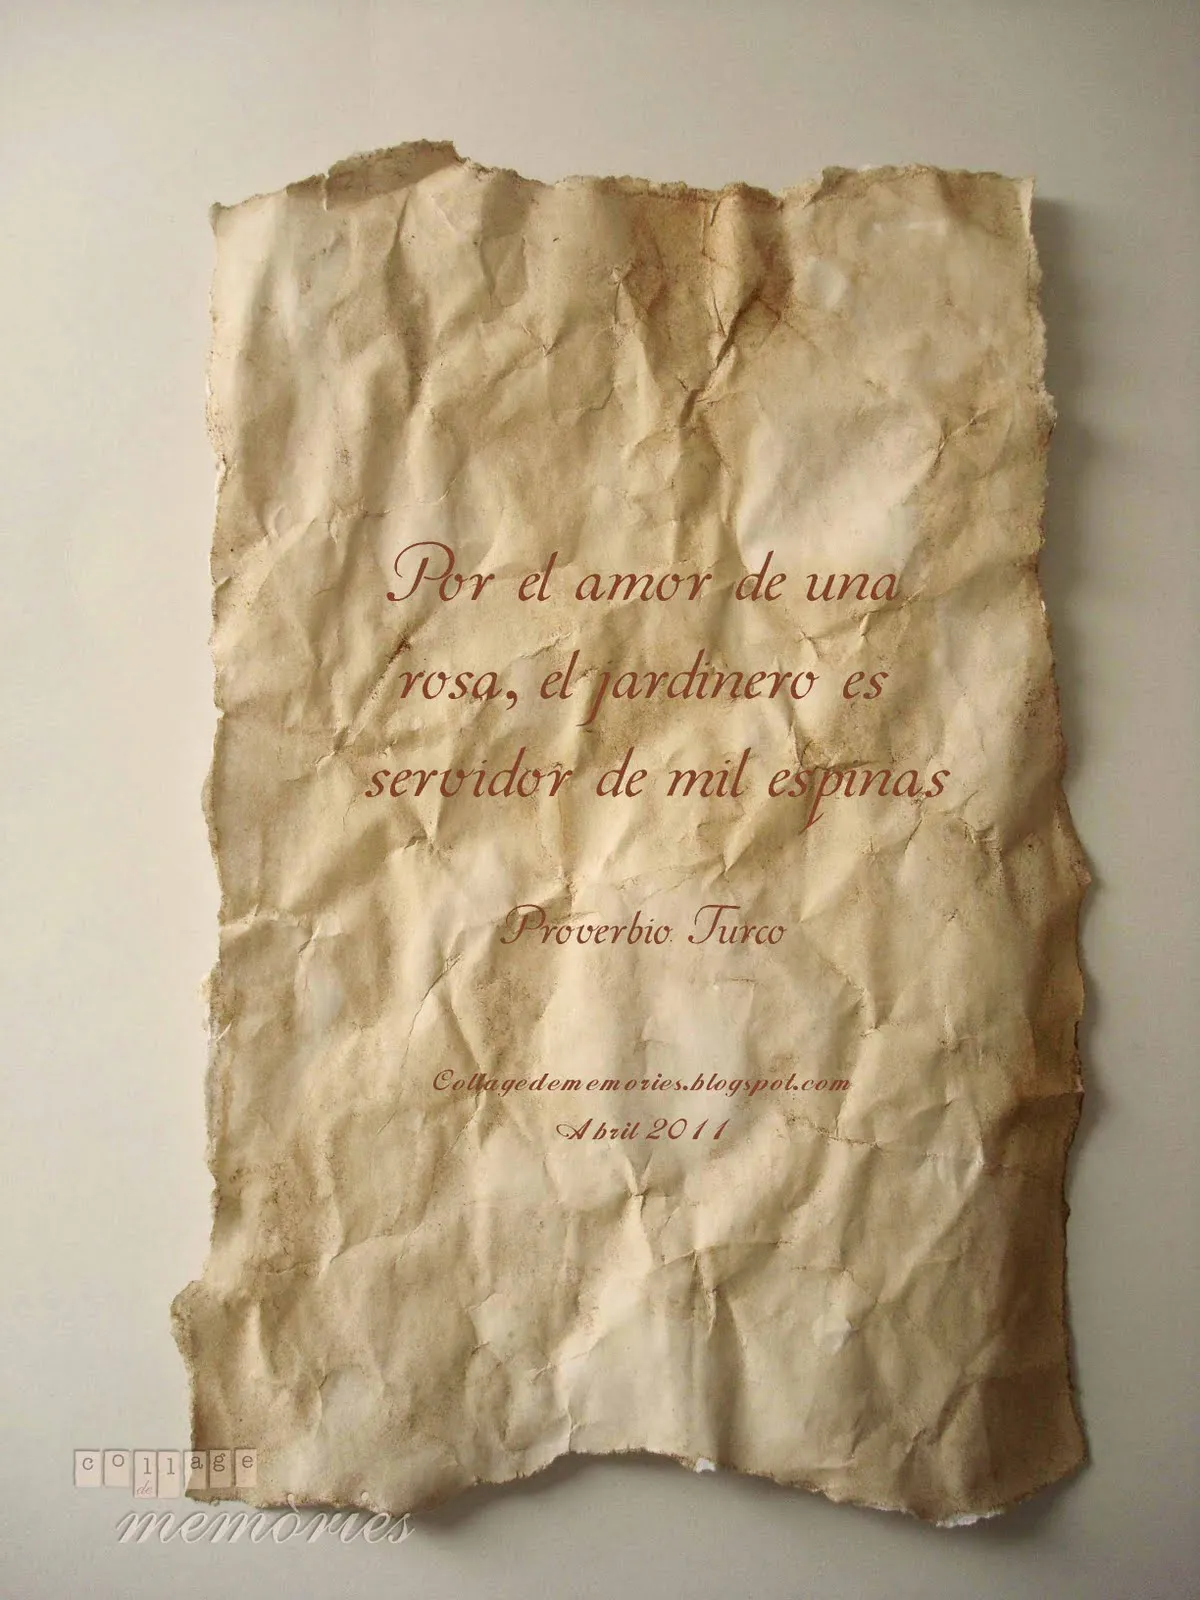 Por el amor de una
rosa, el jardinero es
servidor de mil espinas
Proverbio Turco
Collagedememories.blogspot.com
Abril 2011
collage
de
memòries